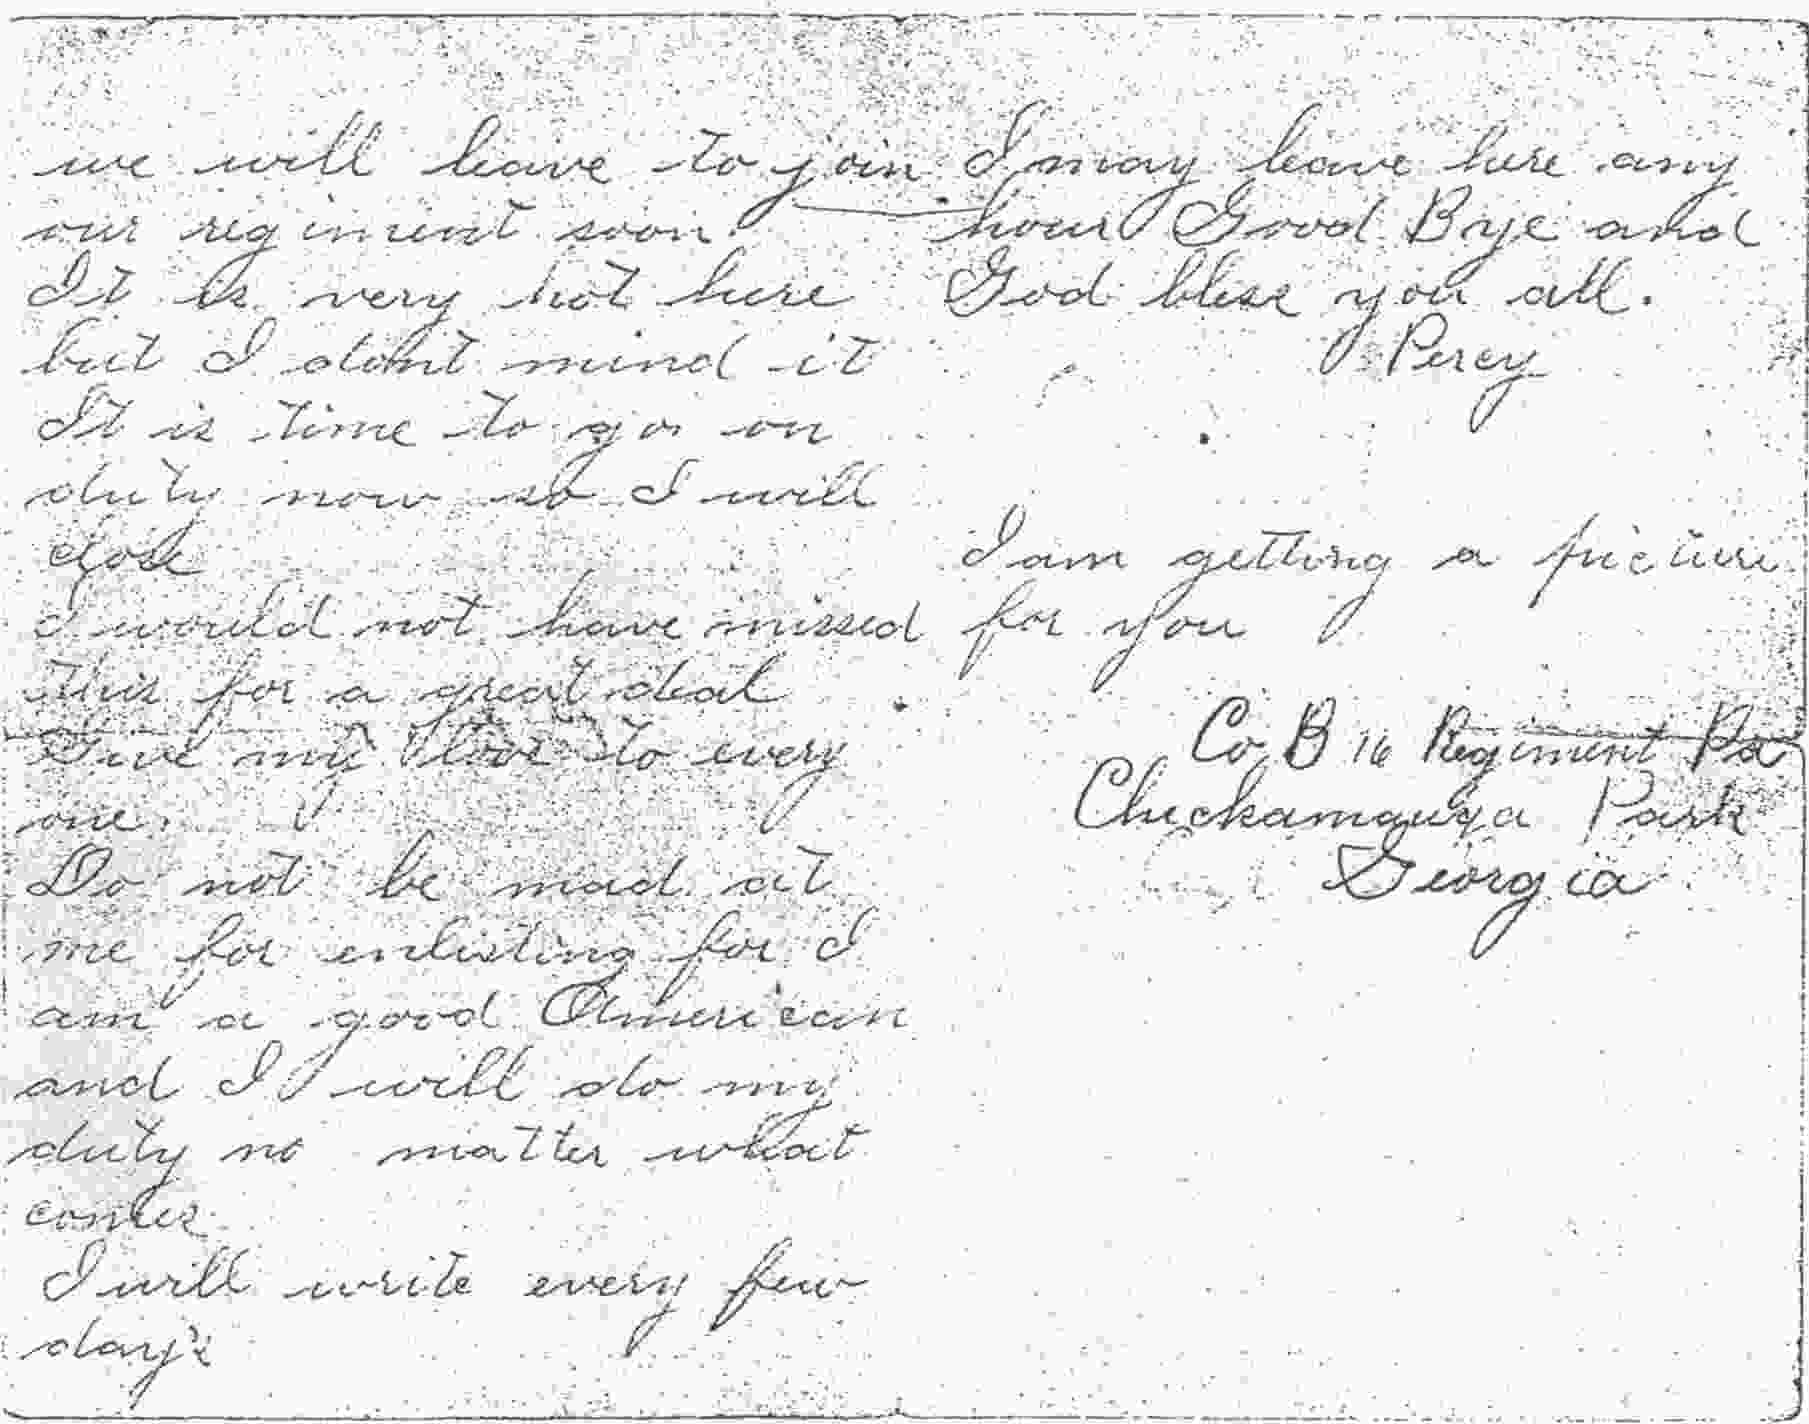 we will leave to join
our regiment soon
It is very hot here
but I dont mind it
It is time to go on
duty now so I will
close
I would not have missed
this for a great deal
Give my love to every
one.
Do not be mad at
me for enlisting for I
am a good American
and I will do my
duty no matter what
comes
I will write every few
day's
I may leave here any
hour Good Bye and
God bless you all.
Percy
I am getting a picture
for you
Co B 16 Regiment Pa
Chickamauga Park
Georgia